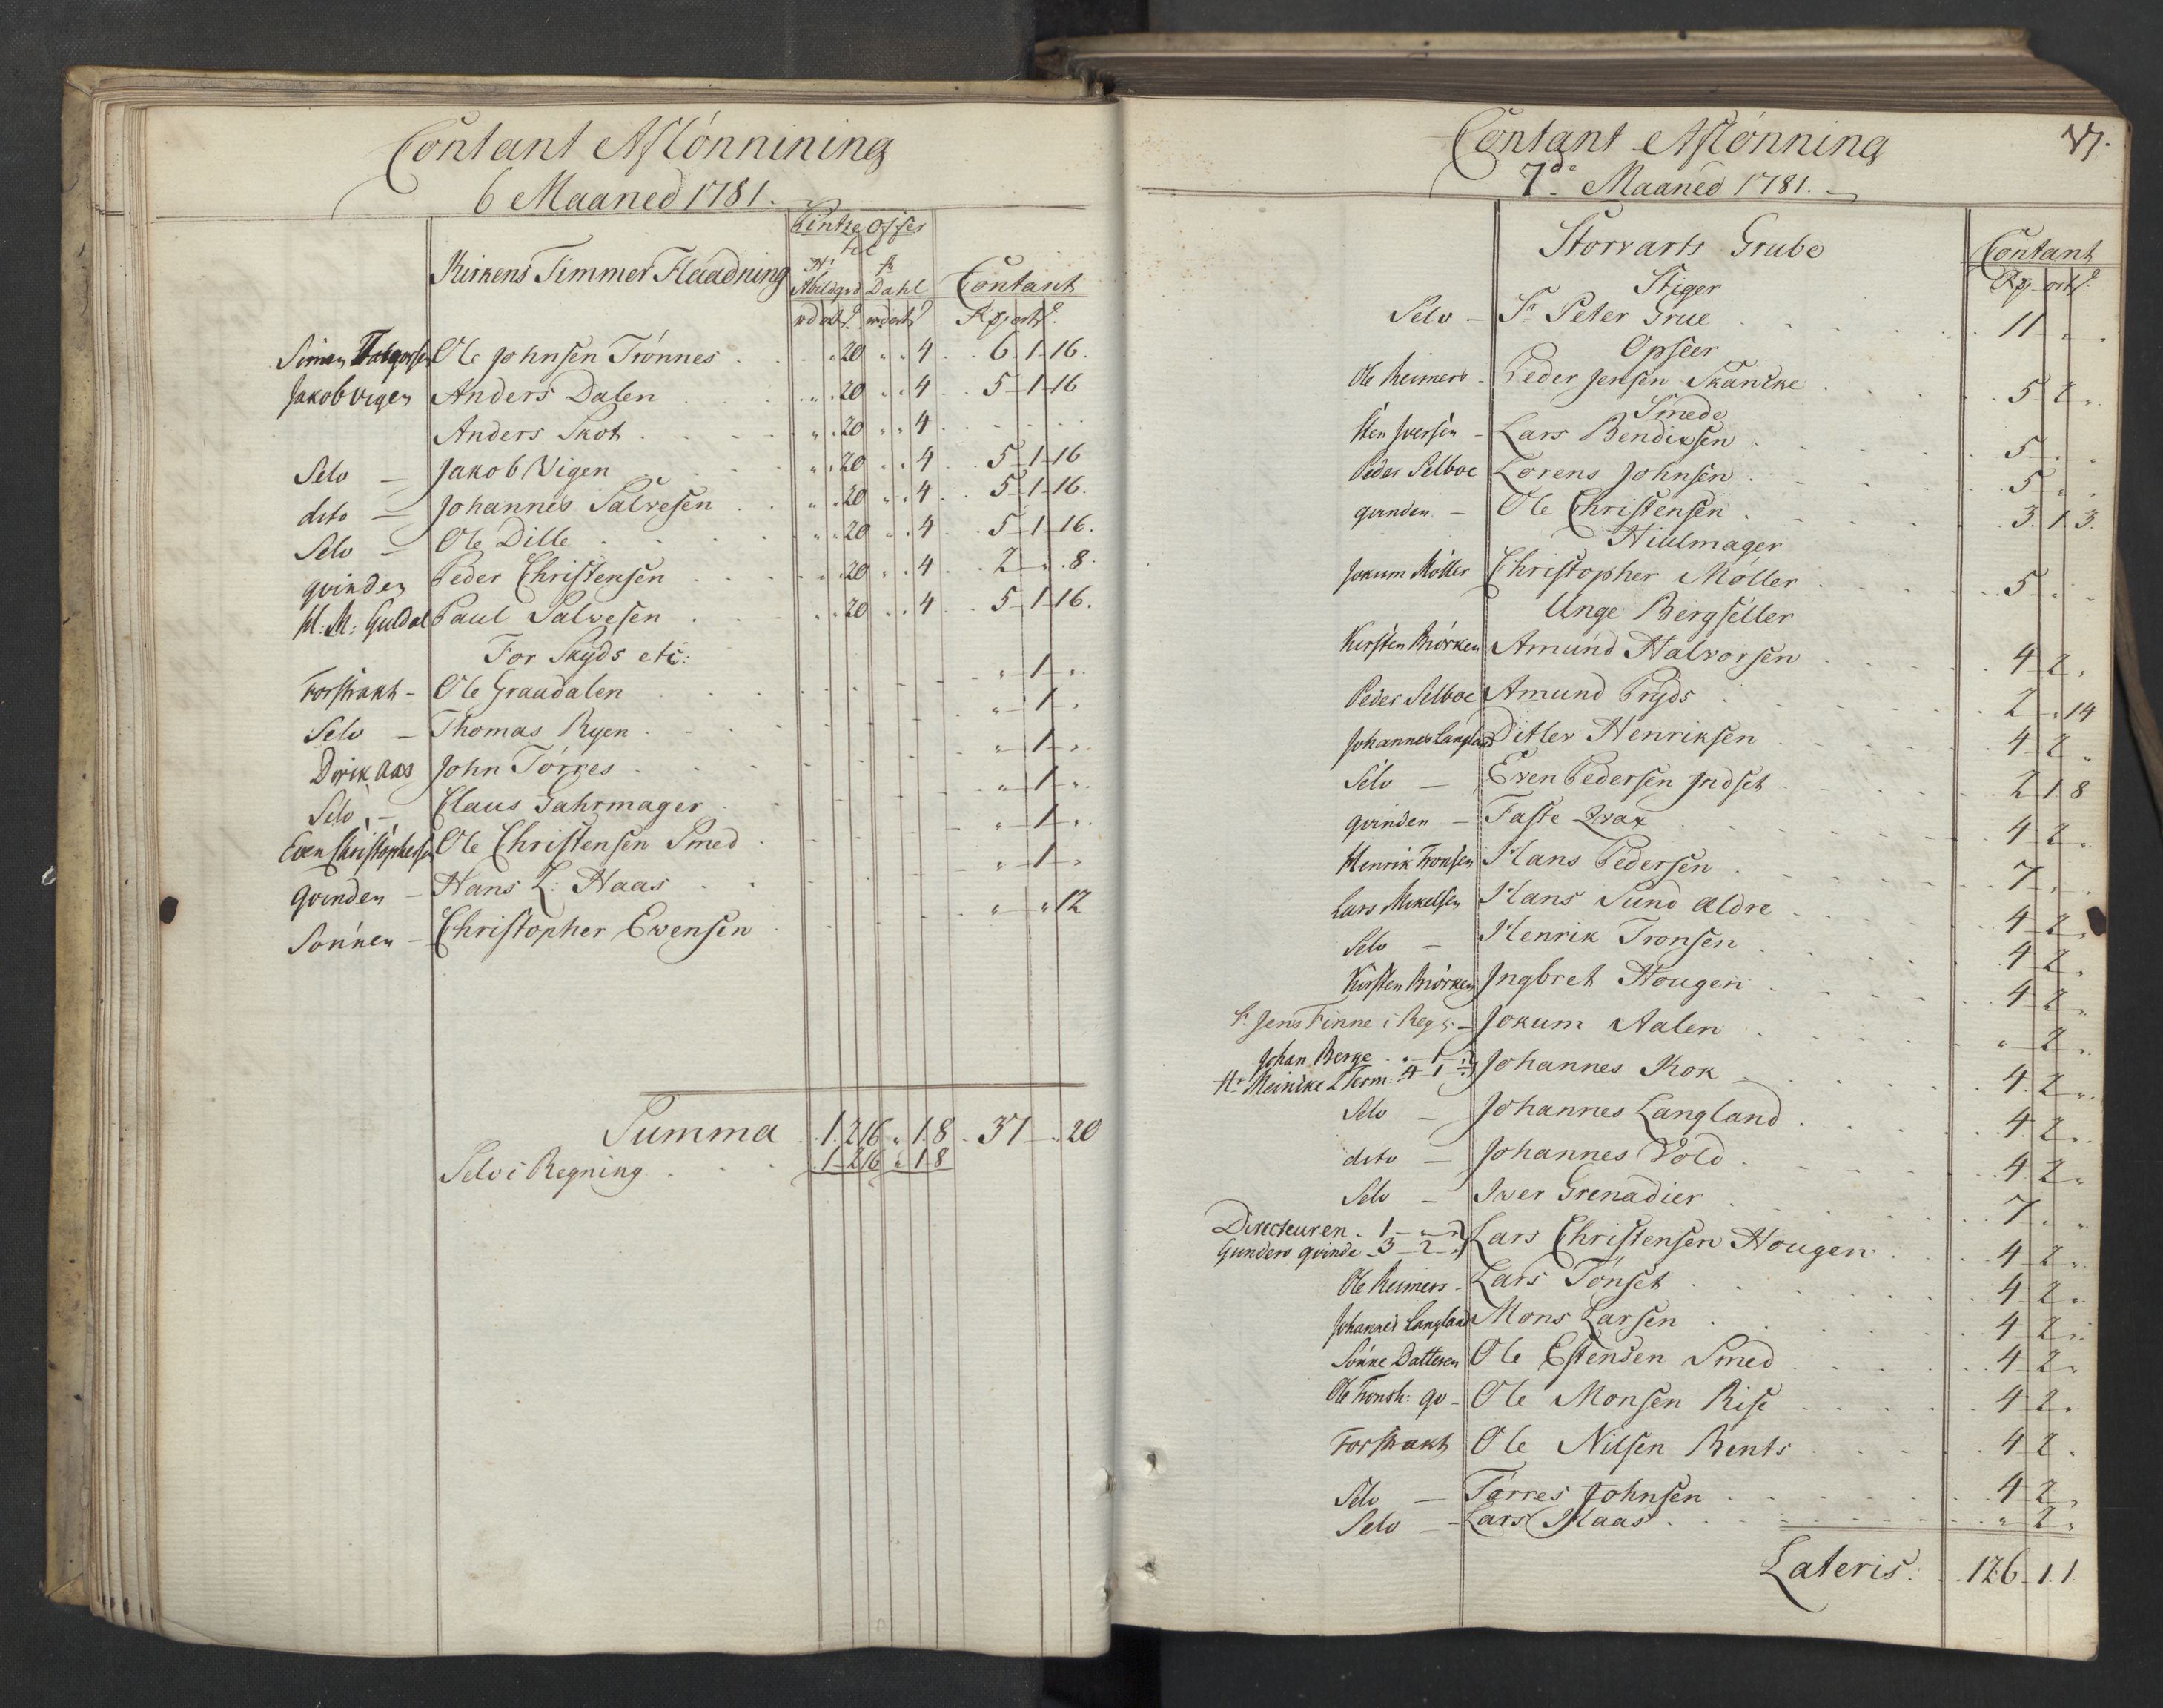 Contant Aflönnining
6 Maaned 1781.
Kirkens Timmer Flaadning
Hr Abildgrd Dahl Contant
Ole Johnsen Trönnes . . 20 " . 4 . . 6 1 16.
Jakob Vigen Anders Dalen . . 20 " . 4 . . 5 1 16
Anders Skot . . 20 " . 4 . . .
Selv — Jakob Vigen . . 20 . . 4 . . 5 1 16
dito — Johannes Salvesen . . 20 " . 4 . . 5 1 16.
Selv — Ole Dille . . 20 . . 4 . . 5 1 16.
qvinden Peder Christensen . . 20 . . 4 . . 2 " . 8.
H: M: Guldal Paul Salvesen . . 20 . . 4 . . 5 1 16.
For Skyds etc:
Forstrakt - Ole Graadalen . . " 1 "
Selv — Thomas Ryen . . " 1 "
Dirik Aas John Törres . . " 1 "
Selv — Claus Gahrmager . . " 1 "
Even Christophersen Ole Christensen Smed . . " 1 "
Qvinden — Hans L: Haas . . " 1 "
Sönnen — Christopher Evensen . . " " 12
Summa . 1. 2 16 " 1. 8 . 37 — " 20
Selv i Regning . . . 1 2 16 " 1 8
Contant Aflönning
7de Maaned 1781.
Storvarts Grube
Contant
Stiger
Selv — Sr Peter Grue . . . 11 " "
Opseer
Ole Reimers - Peder Jensen Skancke . . . 5 2 "
Smede
Sten Iversen - Lars Bendixsen . . . 5 . .
Peder Selboe Lorens Johnsen . . . 5 " .
qvinden — Ole Christensen . . . 3. 1. 3.
Hiulmager
Jokum Möller Christopher Möller . . . 5 . "
Unge Bergseller
Kirsten Biörken Amund Halvorsen . . . 4 2 "
Peder Selboe Amund Pryds . . . 2 " 14
Johannes Langland Ditlev Henriksen . . . 4 2 "
Selv — Even Pedersen Indset . . . 2 1 8
qvinden — Faste Qvax . . . 4 2 "
Henrik Tronsen Hans Pedersen . . . 7 " .
Lars Mikelsen Hans Sund Ældre . . . 4 2 "
Selv — Henrik Tronsen . . . 4 2 "
Kirsten Biörken Ingbret Hougen . . . 4 2 "
Sr Jens Finne i Reg: — Jokum Aalen . . . " 2 "
Johan Berge . " 1 "
Hr Meincke L Term: 4 1 " Johannes Kok . . . 4. 2 "
Selv — Johannes Langland . . . 4. 2 "
dito — Johannes Vold . . . 4. 2 "
Selv — Iver Grenadier . . . 7. . "
Directeuren . 1 — " "
Gunders qvinde 3 2 " Lars Christensen Hougen . . . 4 2 "
Ole Reimers - Lars Tönset . . . 4 2 "
Johannes Langland Mons Larsen . . . 4 2 "
Sönne Datteren Ole Estensen Smed . . . 4 2 "
Ole Monsen Rise . . . 4 2 "
Forstrakt Ole Nilsen Bents . . . 4 2 "
Selv — Törres Johnsen . . . 4 2 "
Selv — Lars Haas . . . " 2 "
Lateris . . 126. 1. 1.